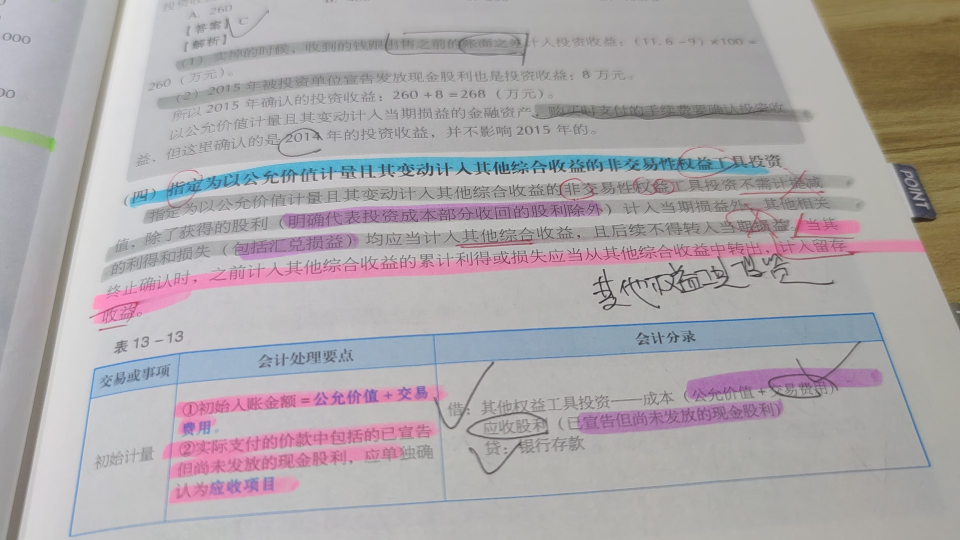 000
00
A. 260
【答案】C
【解析】
（1）卖掉的时候，收到的钱跟出售之前的账面之差计入投资收益：（11.6－9）×100＝
260（万元）。
（2）2015年被投资单位宣告发放现金股利也是投资收益：8万元。
所以2015年确认的投资收益：260＋8＝268（万元）。
以公允价值计量且其变动计入当期损益的金融资产，购买时支付的手续费要确认投资收
益，但这里确认的是2014年的投资收益，并不影响2015年的。
（四）指定为以公允价值计量且其变动计入其他综合收益的非交易性权益工具投资
指定为以公允价值计量且其变动计入其他综合收益的非交易性权益工具投资不需计提减
值，除了获得的股利（明确代表投资成本部分收回的股利除外）计入当期损益外，其他相关
的利得和损失（包括汇兑损益）均应当计入其他综合收益，且后续不得转入当期损益。当其
终止确认时，之前计入其他综合收益的累计利得或损失应当从其他综合收益中转出，计入留存
收益。
其他权益工具投资
POINT
表13－13
交易或事项 会计处理要点 会计分录
初始计量
①初始入账金额＝公允价值＋交易
费用。
②实际支付的价款中包括的已宣告
但尚未发放的现金股利，应单独确
认为应收项目
借：其他权益工具投资——成本（公允价值＋交易费用）
应收股利（已宣告但尚未发放的现金股利）
贷：银行存款